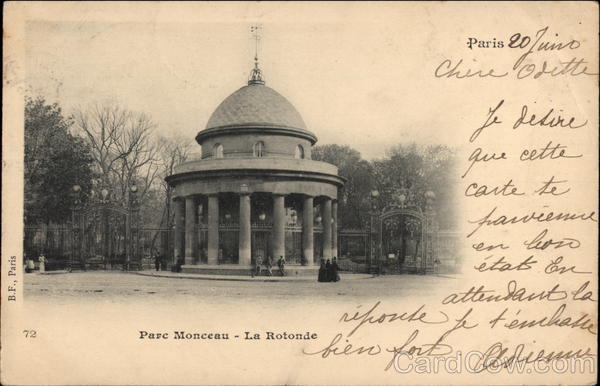 Paris 20 Juin
Chère Odette
Je désire
que cette
carte te
parvienne
en bon
état En
attendant la
réponse Je t'embrasse
bien fort Adrienne
B.F., Paris
72
Parc Monceau - La Rotonde
CardCow.com